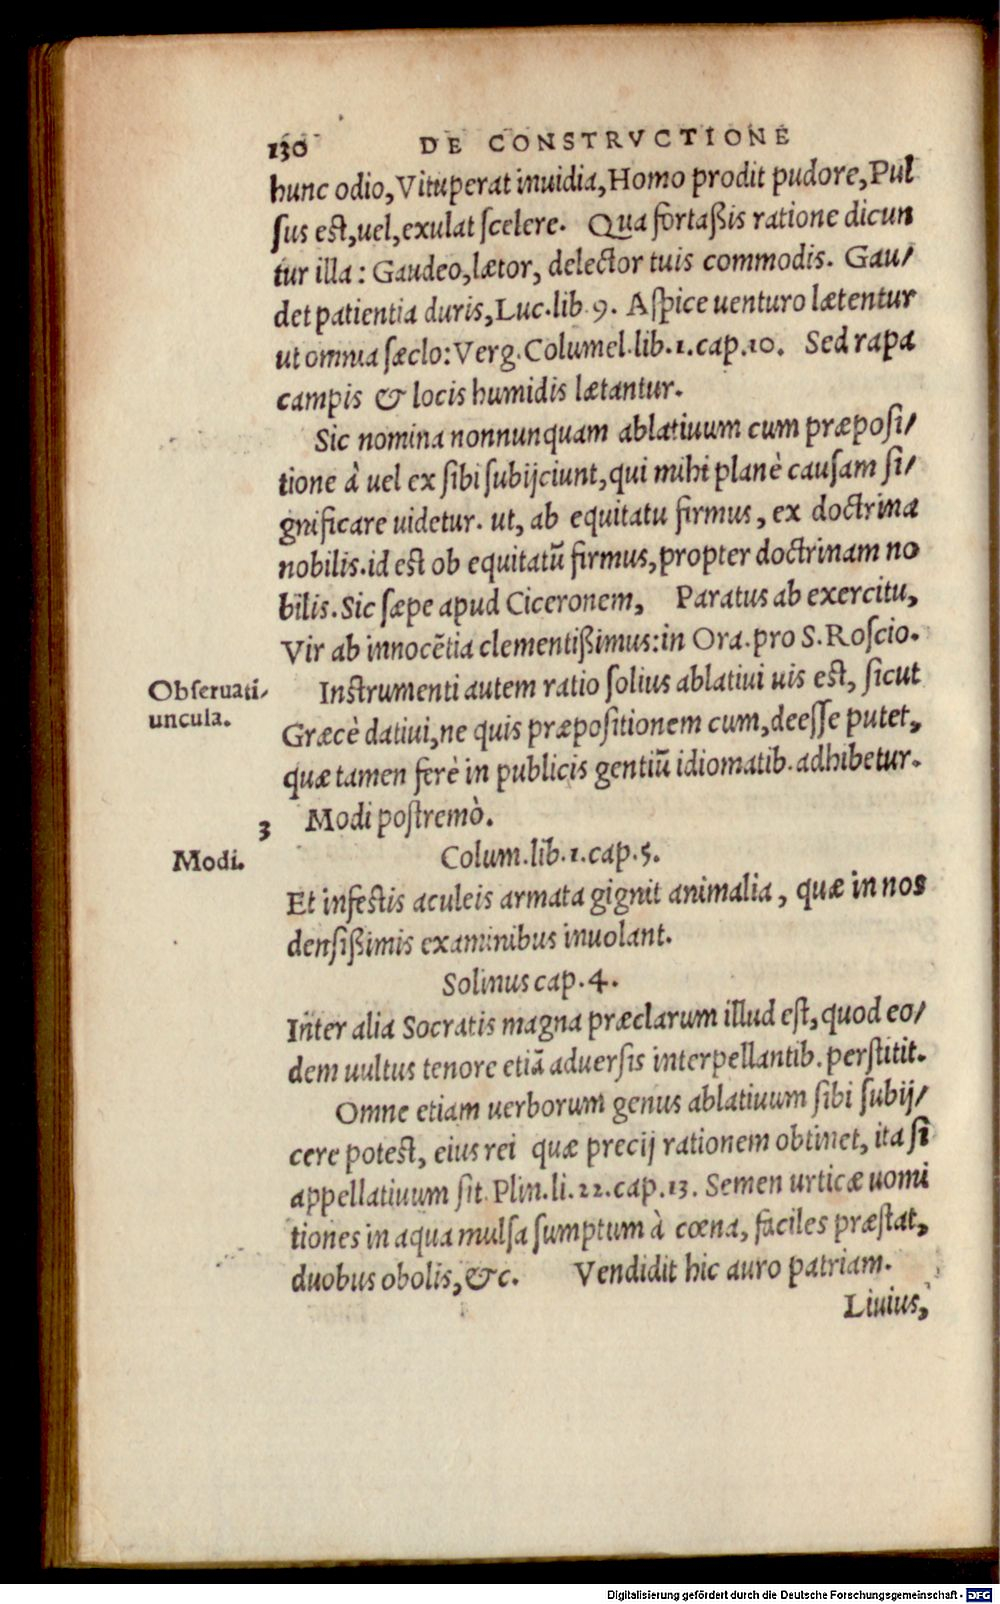 130 DE CONSTRVCTIONE
hunc odio, Vituperat inuidia, Homo prodit pudore, Pul
sus est, uel, exulat scelere. Qua fortaßis ratione dicun
tur illa: Gaudeo, lætor, delector tuis commodis. Gau/
det patientia duris, Luc. lib. 9. Aspice uenturo lætentur
ut omnia sæclo: Verg. Columel. lib. 1. cap. 10. Sed rapa
campis & locis humidis lætantur.
Sic nomina nonnunquam ablatiuum cum præposi/
tione à uel ex sibi subijciunt, qui mihi planè causam si/
gnificare uidetur. ut, ab equitatu firmus, ex doctrina
nobilis. id est ob equitatũ firmus, propter doctrinam no
bilis. Sic sæpe apud Ciceronem, Paratus ab exercitu,
Vir ab innocẽtia clementißimus: in Ora. pro S. Roscio.
Obseruati/
uncula.
Instrumenti autem ratio solius ablatiui uis est, sicut
Græcè datiui, ne quis præpositionem cum, deesse putet,
quæ tamen ferè in publicis gentiũ idiomatib. adhibetur.
3 Modi postremò.
Modi.
Colum. lib. 1. cap. 5.
Et infestis aculeis armata gignit animalia, quæ in nos
densißimis examinibus inuolant.
Solinus cap. 4.
Inter alia Socratis magna præclarum illud est, quod eo/
dem uultus tenore etiã aduersis interpellantib. perstitit.
Omne etiam uerborum genus ablatiuum sibi subij/
cere potest, eius rei quæ precij rationem obtinet, ita si
appellatiuum sit. Plin. li. 22. cap. 13. Semen urticæ uomi
tiones in aqua mulsa sumptum à cœna, faciles præstat,
duobus obolis, &c. Vendidit hic auro patriam.
Liuius,
Digitalisierung gefördert durch die Deutsche Forschungsgemeinschaft - DFG